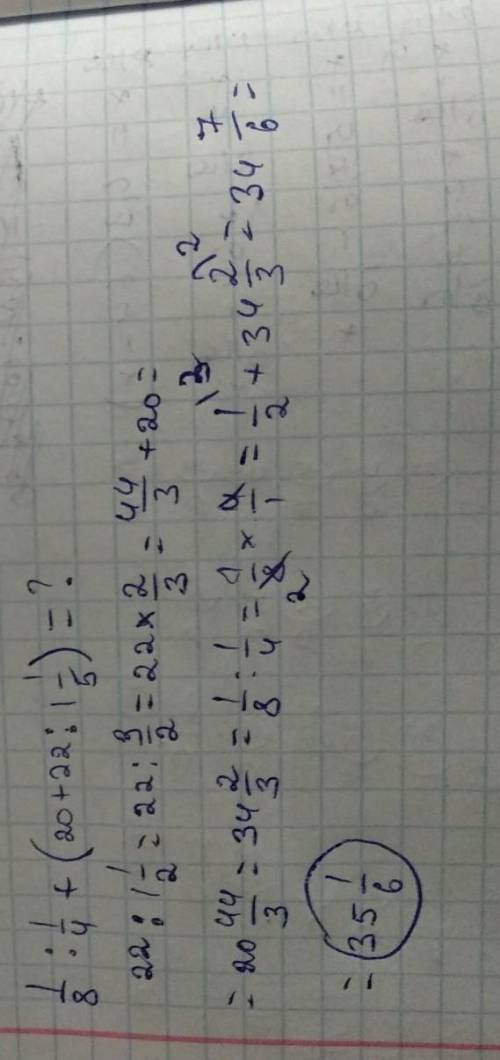 1/8 : 1/4 + (20+22 : 1 1/5) = ?
22 : 1 1/2 = 22 : 3/2 = 22 × 2/3 = 44/3 + 20 =
= 20 44/3 = 34 2/3 = 1/8 : 1/4 = 1/8 × 4/1 = 1/2 + 34 2/3 = 34 7/6 =
= 35 1/6